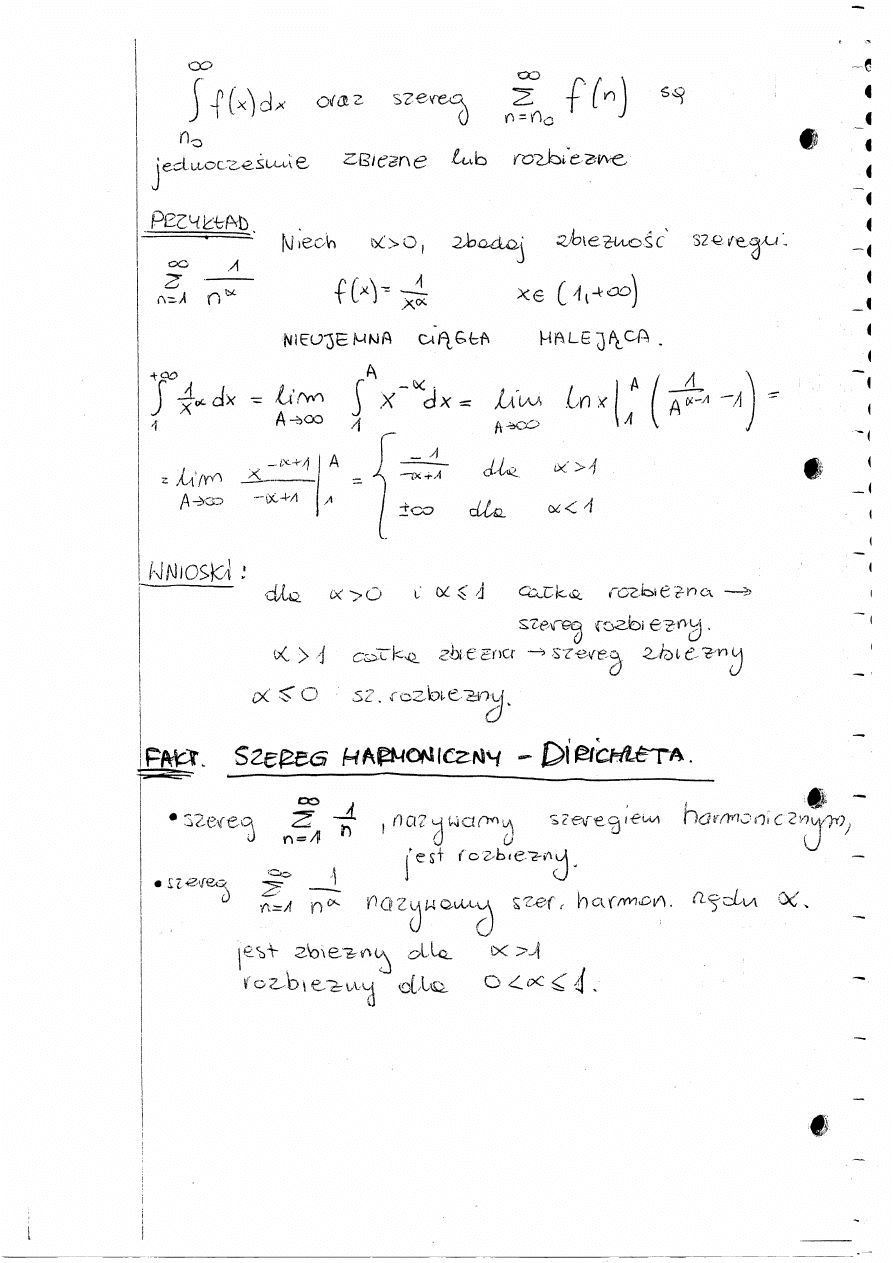 ∞
∫ f(x)dx oraz szereg ∑_{n=n₀}^{∞} f(n) są
n₀
jednocześnie zbiezne lub rozbiezne
PRZYKŁAD. Niech α>0, zbadaj zbiezność szeregu:
∑_{n=1}^{∞} 1/n^α f(x)= 1/x^α x∈ (1,+∞)
NIEUJEMNA CIĄGŁA MALEJĄCA.
∫_{1}^{+∞} 1/x^α dx = lim_{A→∞} ∫_{1}^{A} x^{-α}dx = lim_{A→∞} ln x|_{1}^{A} (1/A^{α-1} -1) =
= lim_{A→∞} x^{-α+1}/(-α+1) |_{1}^{A} = { -1/(-α+1) dla α>1
±∞ dla α<1
WNIOSKI:
dla α>0 i α≤1 całka rozbiezna →
szereg rozbiezny.
α>1 całka zbiezna → szereg zbiezny
α≤0 sz. rozbiezny.
FAKT. SZEREG HARMONICZNY - DIRICHLETA.
• szereg ∑_{n=1}^{∞} 1/n , nazywamy szeregiem harmonicznym,
jest rozbiezny.
• szereg ∑_{n=1}^{∞} 1/n^α nazywamy szer. harmon. rzędu α.
jest zbiezny dla α>1
rozbiezny dla 0<α≤1.